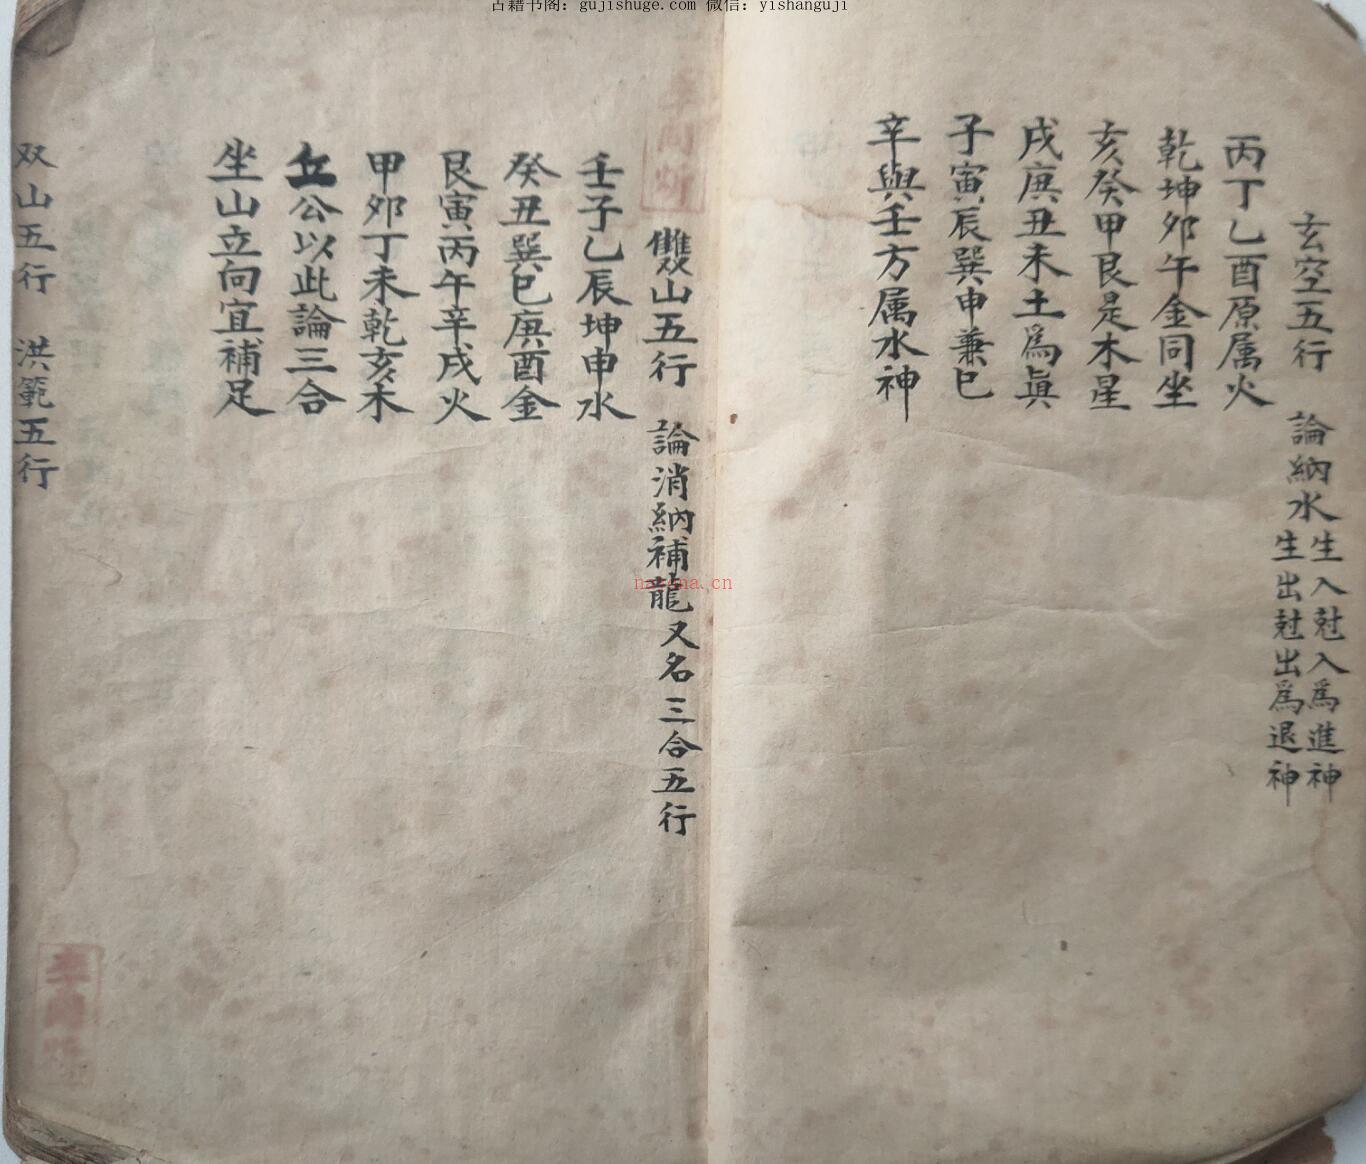 古籍书阁：gujishuge.com 微信：yishanguji
玄空五行 論納水 生入尅入爲進神 生出尅出爲退神
丙丁乙酉原属火
乾坤卯午金同坐
亥癸甲艮是木星
戌庚丑未土爲真
子寅辰巽申兼巳
辛與壬方属水神
雙山五行 論消納補龍又名三合五行
壬子乙辰坤申水
癸丑巽巳庚酉金
艮寅丙午辛戌火
甲卯丁未乾亥木
丘公以此論三合
坐山立向宜補足
双山五行 洪範五行